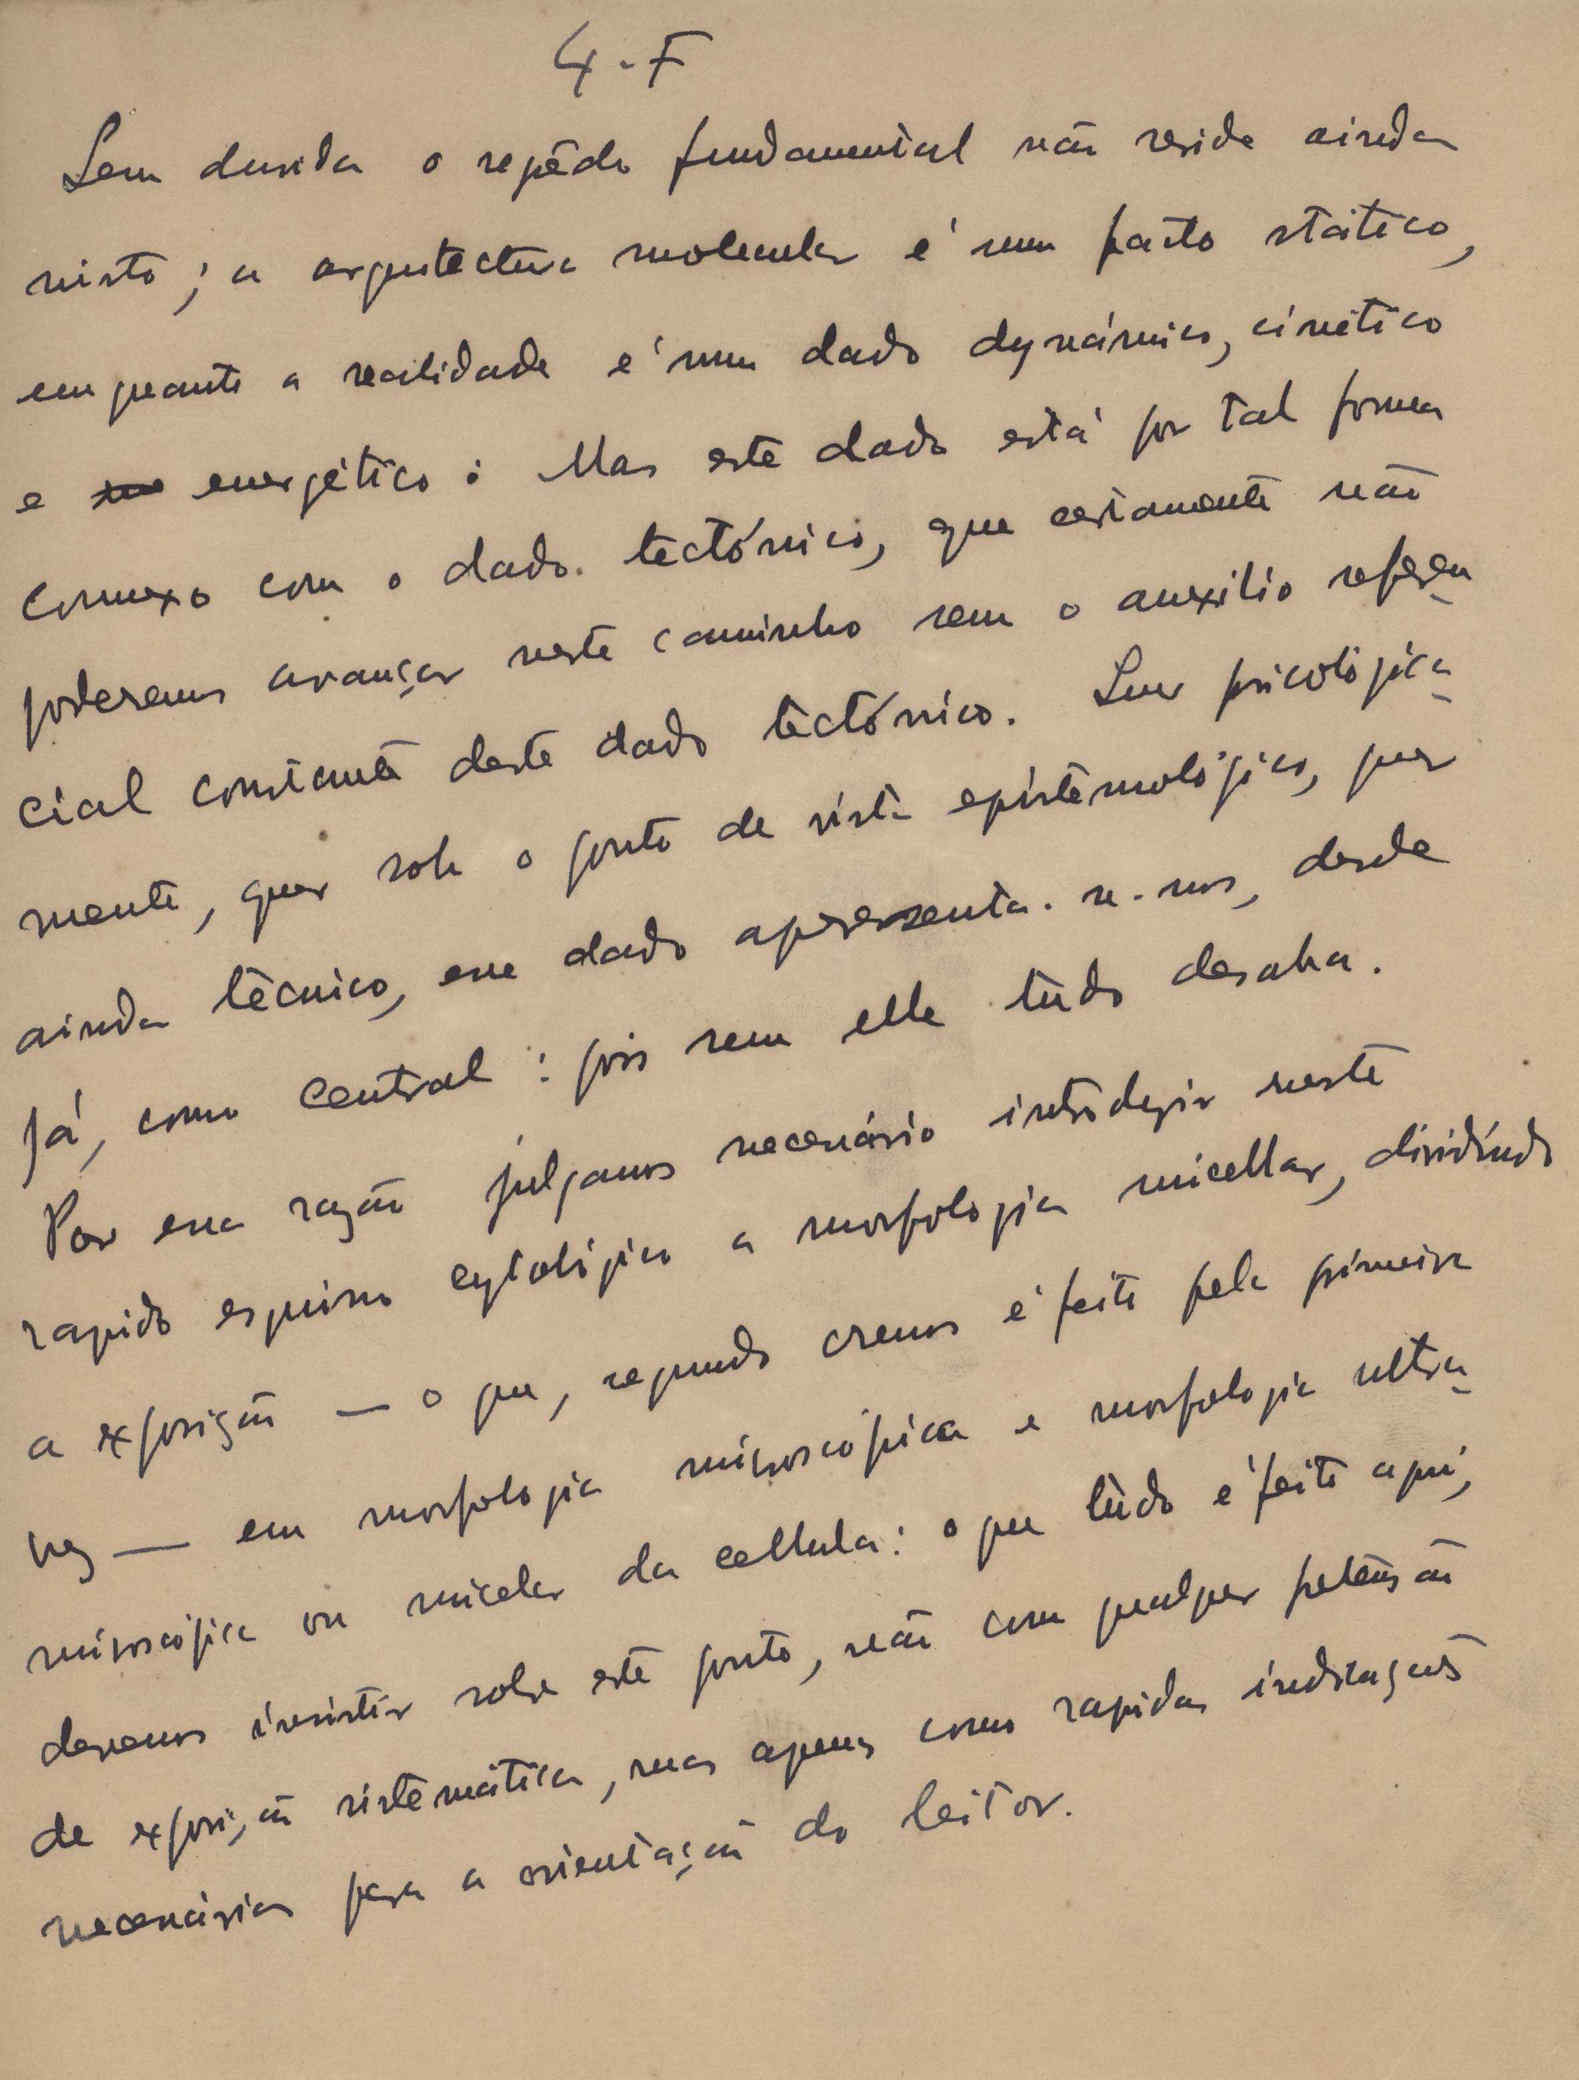 4-F
Sem duvida o segrêdo fundamental não reside ainda
nisto; a arquitectura molecular é um facto stático,
emquanto a realidade é um dado dynámico, cinético
e energético. Mas este dado está por tal forma
connexo com o dado tectónico, que certamente não
poderemos avançar neste caminho sem o auxilio referen
cial constante deste dado tectónico. Quer psicológica
mente, quer sob o ponto de vista epistemológico, quer
ainda técnico, esse dado apresenta-se-nos, desde
já, como central: pois sem elle tudo desaba.
Por essa razão julgamos necessário introduzir neste
rapido esquisso cytológico a morfologia micellar, dividindo
a exposição — o que, segundo cremos é feito pela primeira
vez — em morfologia microscópica e morfologia ultra
microscópica ou micelar da cellula: o que tudo é feito aqui,
devemos insistir sobre este ponto, não com qualquer pretensão
de exposição sistemática, mas apenas como rapidas indicações
necessárias para a orientação do leitor.